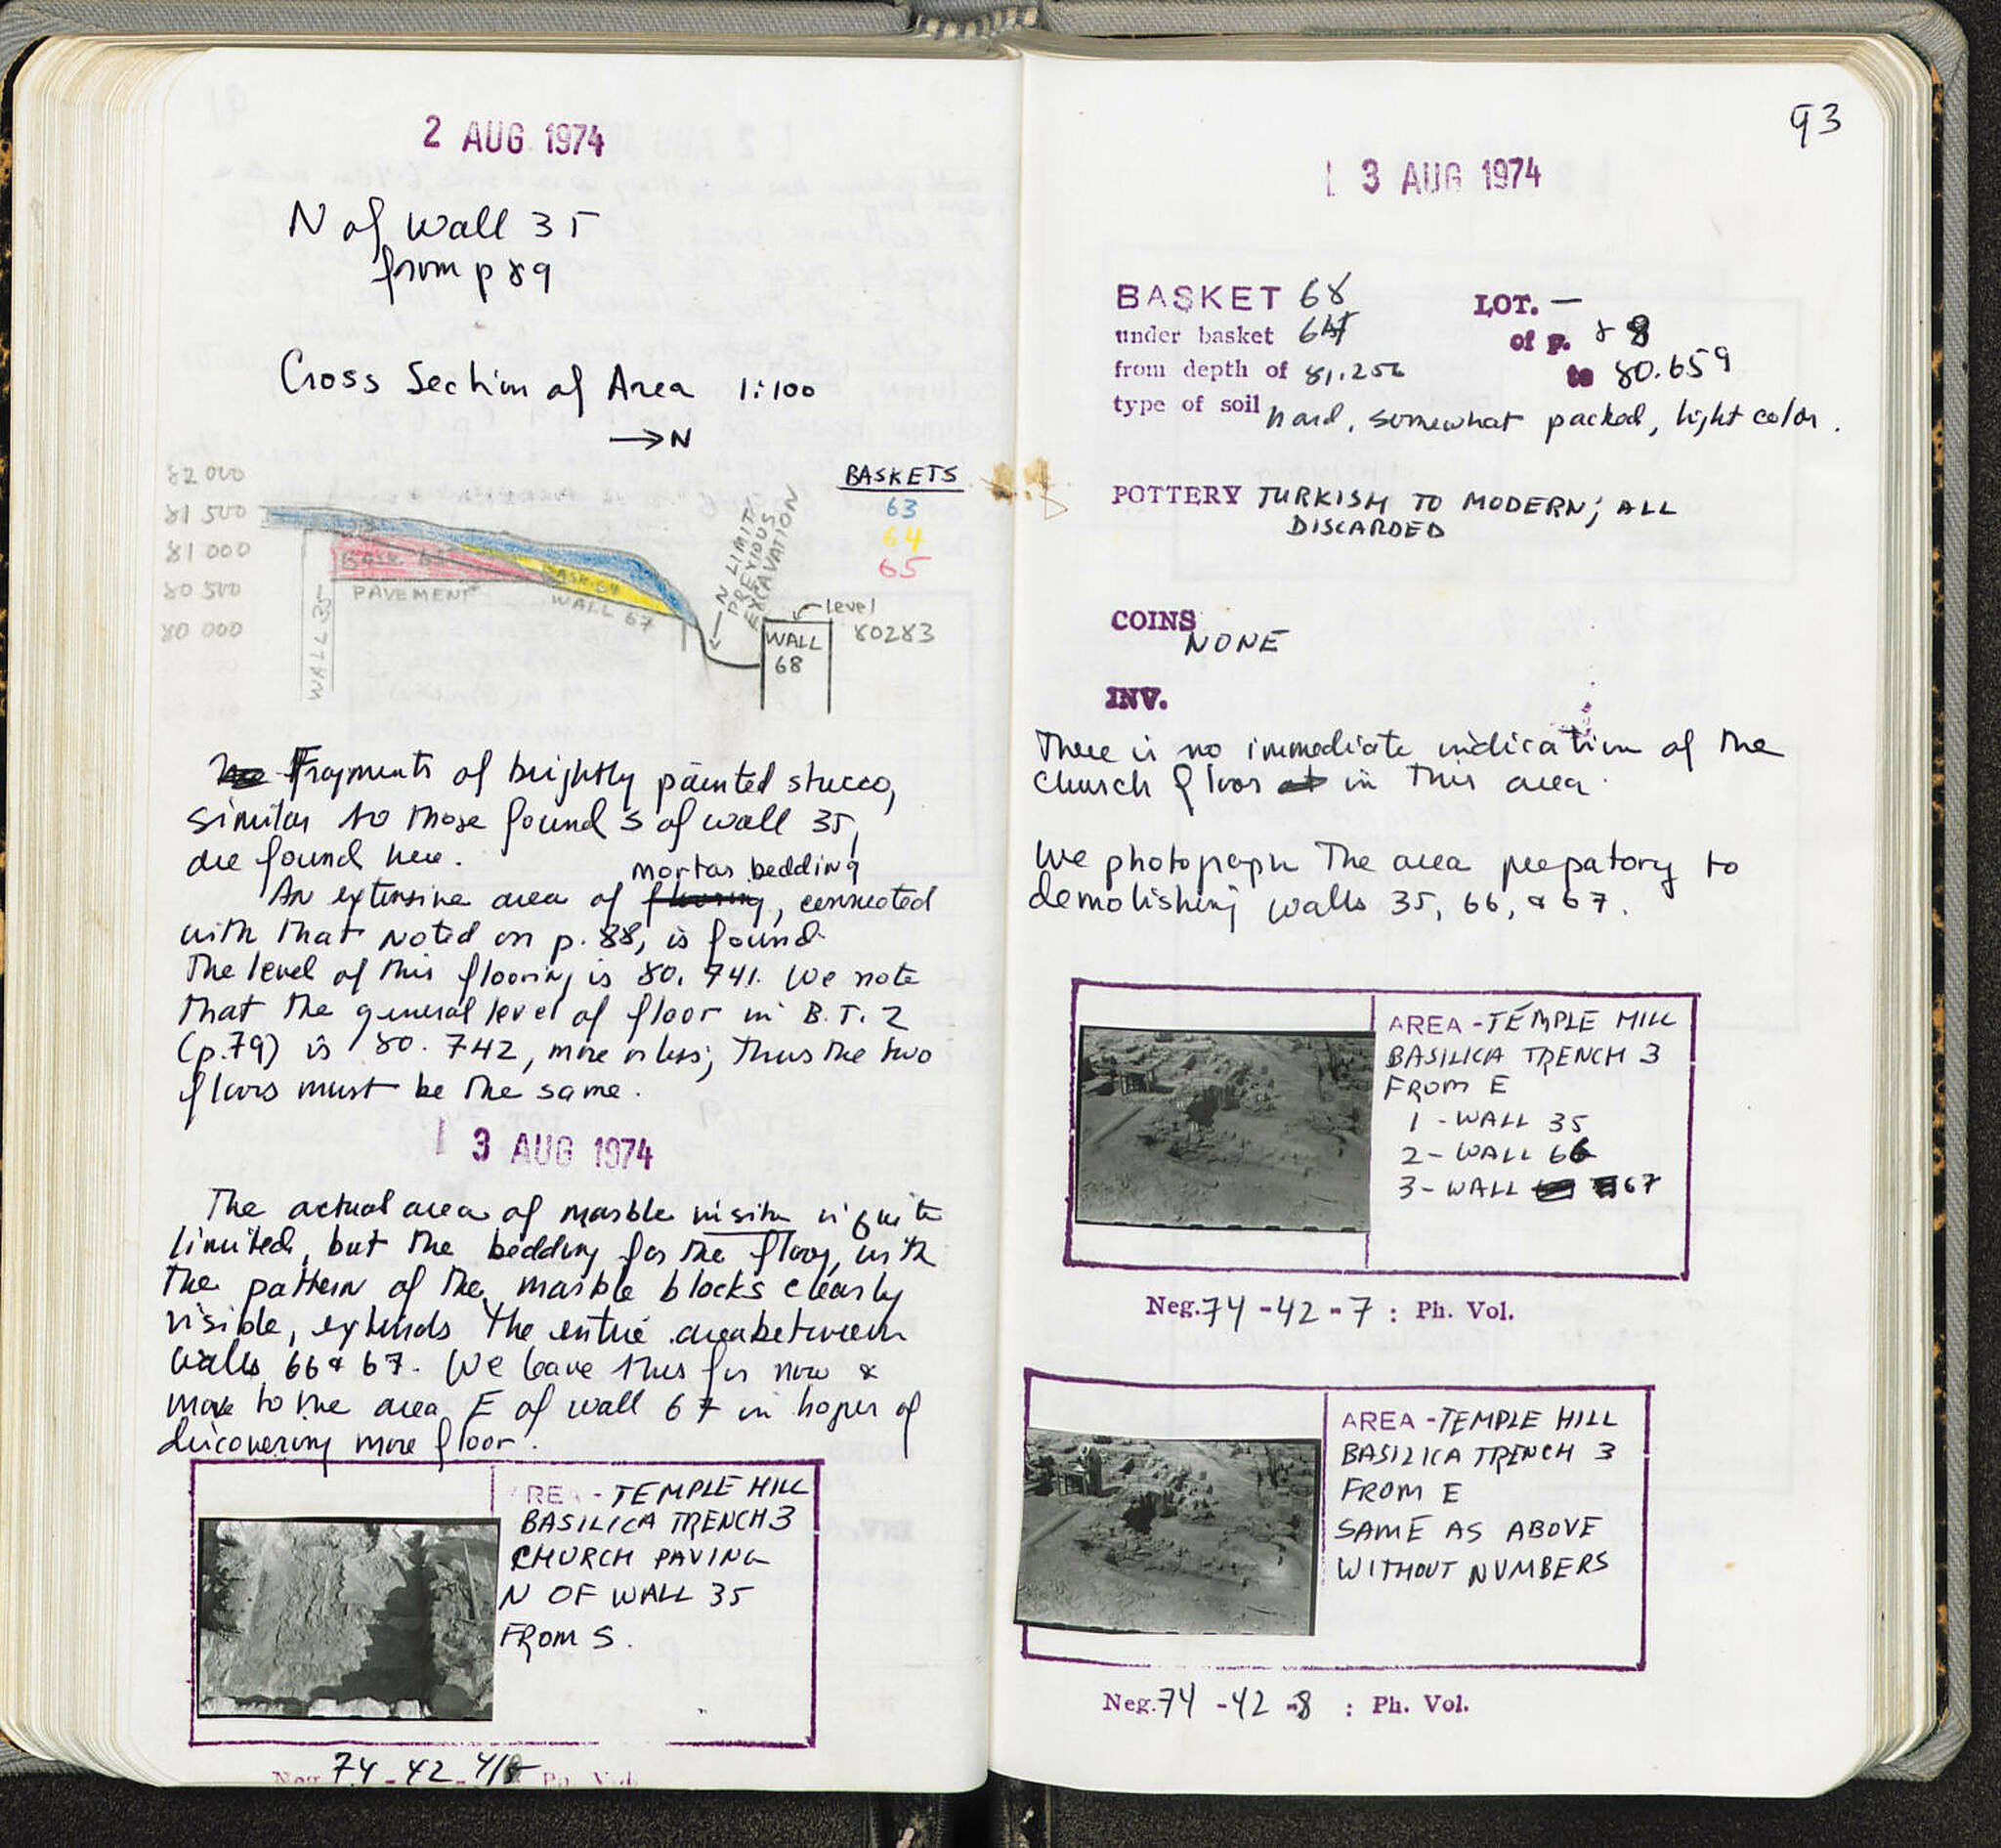 2 AUG 1974
N of Wall 35
from p 89
Cross Section of Area 1:100
→N
82 000
81 500
81 000
80 500
80 000
WALL 35
BASK 65
PAVEMENT
BASK 64
WALL 67
N LIMIT
PREVIOUS
EXCAVATION
BASKETS
63
64
65
level
80283
WALL
68
Fragments of brightly painted stucco,
similar to those found S of wall 35,
are found here.
mortar bedding
An extensive area of flooring, connected
with that noted on p. 88, is found.
The level of this flooring is 80.741. We note
that the general level of floor in B.T. 2
(p.79) is 80.742, more or less; thus the two
floors must be the same.
3 AUG 1974
The actual area of marble in situ is quite
limited, but the bedding for the floor, with
the pattern of the marble blocks clearly
visible, extends the entire area between
walls 66 & 67. We leave this for now &
move to the area E of wall 67 in hopes of
discovering more floor.
AREA - TEMPLE HILL
BASILICA TRENCH 3
CHURCH PAVING
N OF WALL 35
FROM S.
Neg. 74 - 42 - 4/5 Ph. Vol.
93
3 AUG 1974
BASKET 68 LOT. —
under basket 64 of p. 88
from depth of 81.256 to 80.659
type of soil hard, somewhat packed, light color.
POTTERY TURKISH TO MODERN; ALL
DISCARDED
COINS
NONE
INV.
There is no immediate indication of the
church floor at in this area.
We photograph the area prepatory to
demolishing walls 35, 66, & 67.
AREA - TEMPLE HILL
BASILICA TRENCH 3
FROM E
1 - WALL 35
2 - WALL 66
3 - WALL 67
Neg. 74 - 42 - 7 : Ph. Vol.
AREA - TEMPLE HILL
BASILICA TRENCH 3
FROM E
SAME AS ABOVE
WITHOUT NUMBERS
Neg. 74 - 42 - 8 : Ph. Vol.